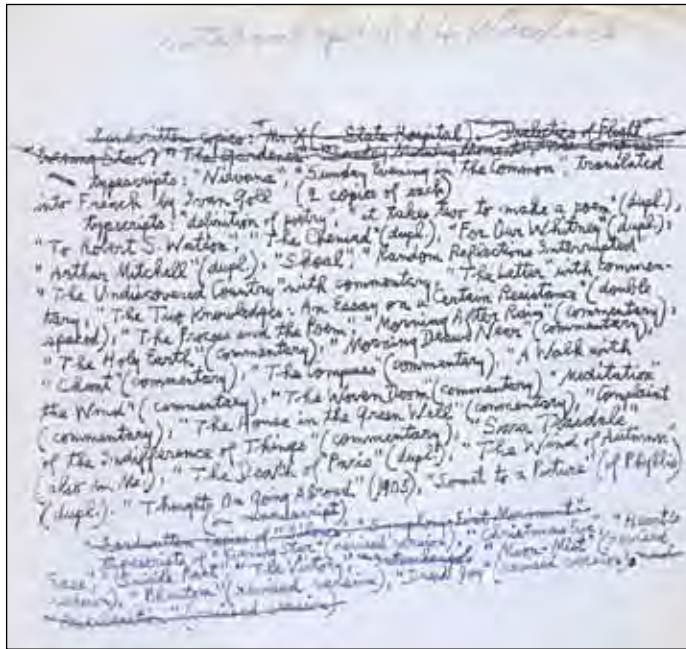 handwritten copies: The X ( State Hospital) "Dialectics of Flight"
"Evening Star" "The Gardener"
typescripts: "Nirvana", "Sunday Evening in the Common", translated
into French by Ivan Goll (2 copies of each)
typescripts: "definition of poetry", "it takes two to make a poem" (dupl.),
"To Robert S. Watson", "The Cheniad" (dupl.), "For Our Whitney" (dupl.),
"Arthur Mitchell" (dupl.), "Shoal", "Random Reflections Interrupted"
"The Undiscovered Country" with commentary, "The Letter" with commen-
tary, "The Two Knowledges: An Essay on a Certain Resistance" (double
spaced), "The Process and the Poem", "Morning After Rain" (commentary),
"The Holy Earth" (commentary), "Morning Draws Near" (commentary),
"Chant" (commentary), "The Compass" (commentary), "A Walk with
the Wind" (commentary), "The Woven Doom" (commentary) "Meditation"
(commentary), "The House in the Green Well" (commentary), "Complaint
of the Indifference of Things" (commentary), "Sara Teasdale"
(also in Ms.), "The Death of Paris" (dupl.), "The Wind of Autumn"
(dupl.). "Thoughts On Going Abroad" (1903), "Sonnet to a Picture" (of Phyllis)
(in handscript)
handwritten copies of "First Movement"
typescripts of "Evening Star" (revised version), "Christmas Eve", "Heart's
Ease", "The Victory", "Moon-Mist" (revised
version), "Phantom" (revised version), "Dread Joy" (revised version)
(revised version)